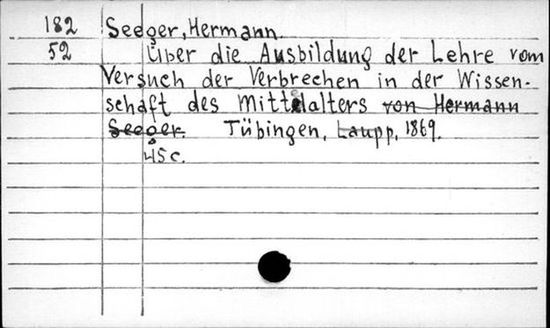 182 Seeger, Hermann.
52 Über die Ausbildung der Lehre vom
Versuch der Verbrechen in der Wissen-
schaft des Mittelalters von Hermann
Seeger. Tübingen, Laupp, 1869.
45 c.